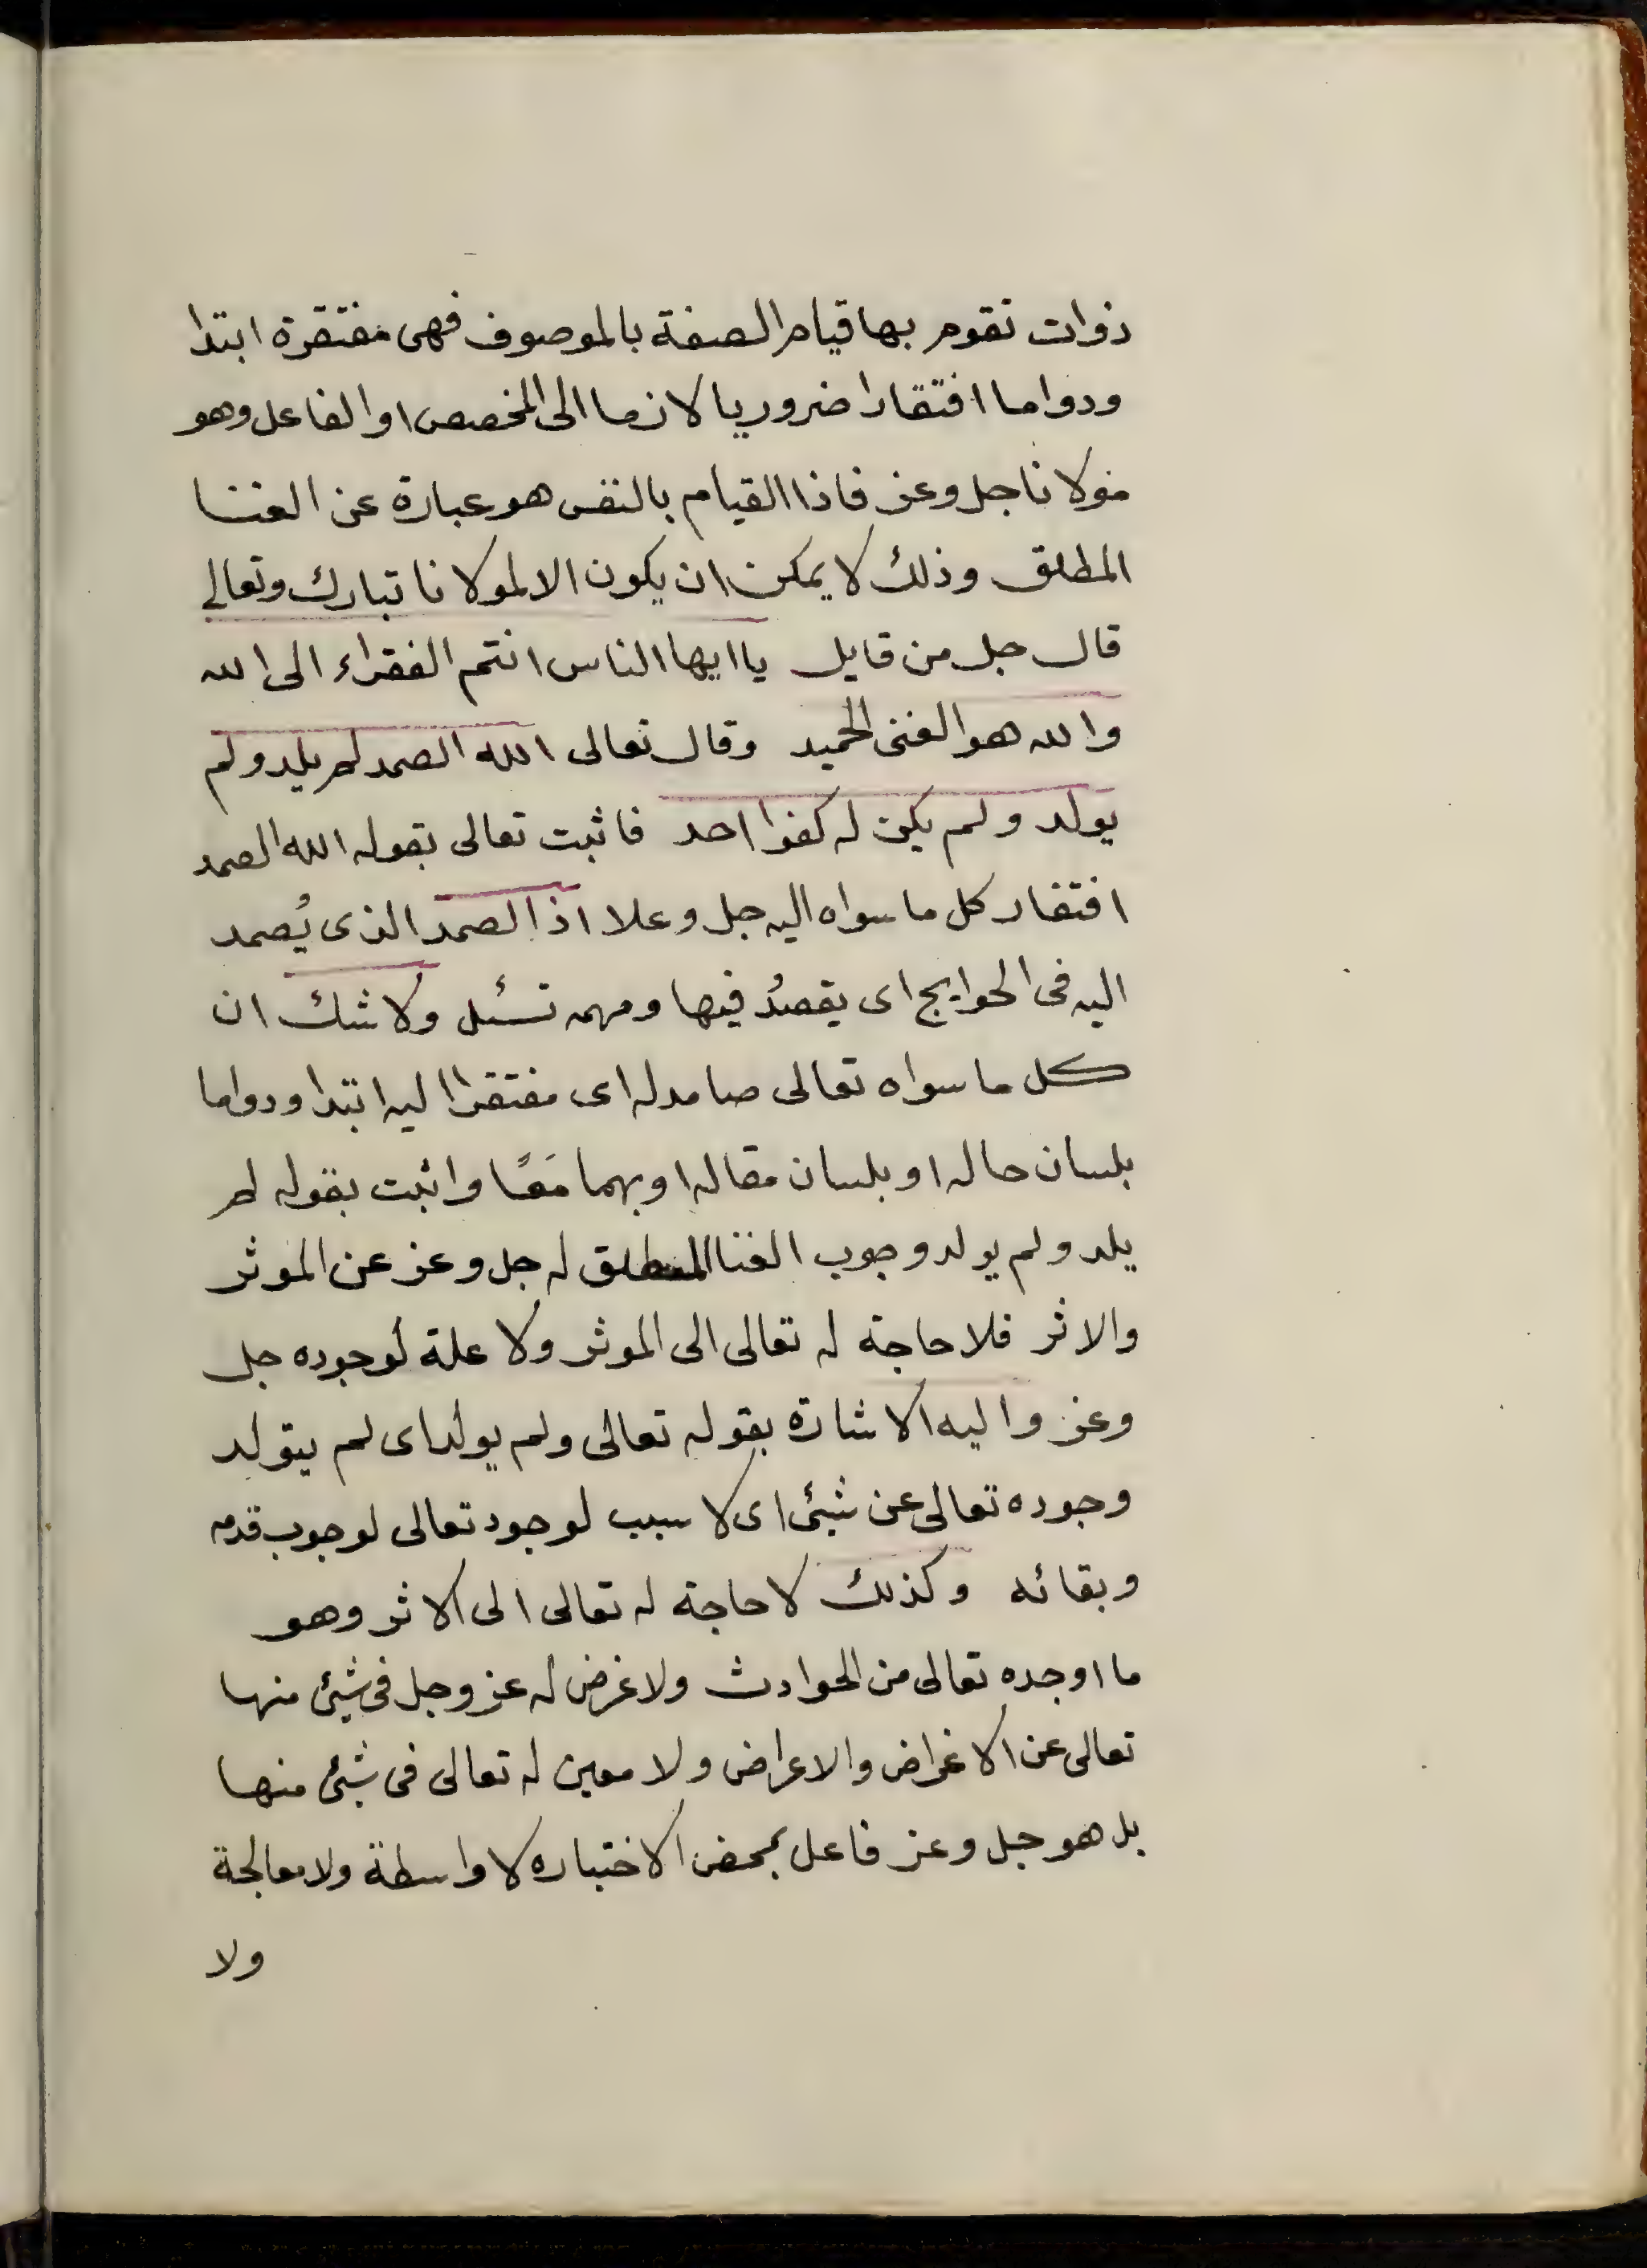 ذوات تقوم بها قيام الصفة بالموصوف فهى مفتقرة ابتدا
ودواما افتقارا ضروريا لازما الى المخصص او الفاعل وهو
مولانا جل وعز فاذا القيام بالنفس هو عبارة عن الغنا
المطلق وذلك لا يمكن ان يكون الا لمولانا تبارك وتعالى
قال جل من قايل يا ايها الناس انتم الفقراء الى الله
والله هو الغنى الحميد وقال تعالى الله الصمد لم يلد ولم
يولد ولم يكن له كفوا احد فاثبت تعالى بقوله الله الصمد
افتقار كل ما سواه اليه جل وعلا اذ الصمد الذى يُصمد
اليه فى الحوايج اى يقصدُ فيها ومهمه تسئل ولا شك ان
كل ما سواه تعالى صامد له اى مفتقرا اليه ابتدا ودواما
بلسان حاله او بلسان مقاله او بهما مَعًا واثبت بقوله لم
يلد ولم يولد وجوب الغنا المطلق له جل وعز عن الموثر
والاثر فلا حاجة له تعالى الى الموثر ولا علة لوجوده جل
وعز واليه الاشارة بقوله تعالى ولم يولد اى لم يتولد
وجوده تعالى عن شيئ اى لا سبب لوجود تعالى لوجوب قدمه
وبقائه وكذلك لا حاجة له تعالى الى الاثر وهو
ما اوجده تعالى من الحوادث ولا غرض له عز وجل فى شيئ منها
تعالى عن الاغراض والاعراض ولا معين له تعالى فى شيئ منها
بل هو جل وعز فاعل بمحض الاختياره لا واسطة ولا معالجة
ولا